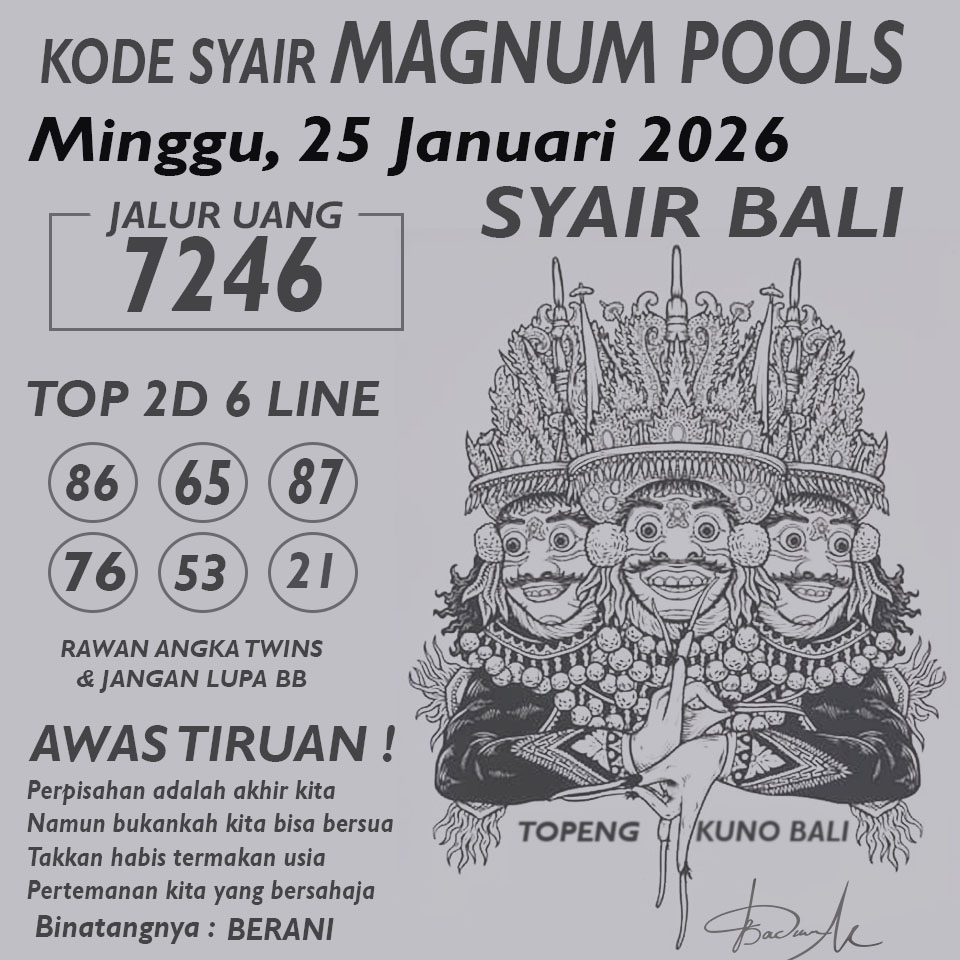 KODE SYAIR MAGNUM POOLS
Minggu, 25 Januari 2026
SYAIR BALI
JALUR UANG
7246
TOP 2D 6 LINE
86 65 87
76 53 21
RAWAN ANGKA TWINS
& JANGAN LUPA BB
AWAS TIRUAN !
Perpisahan adalah akhir kita
Namun bukankah kita bisa bersua
Takkan habis termakan usia
Pertemanan kita yang bersahaja
Binatangnya : BERANI
TOPENG KUNO BALI